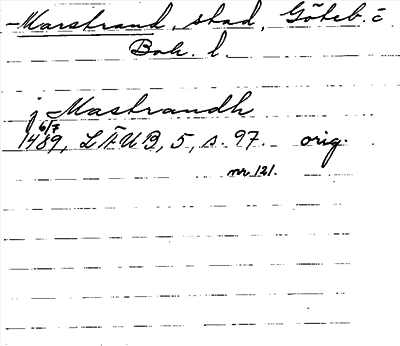 Marstrand, stad, Göteb. o
Boh. l.
j Mastrandh
6/7
1489, LÄUB, 5, s. 97. orig.
nr 121.